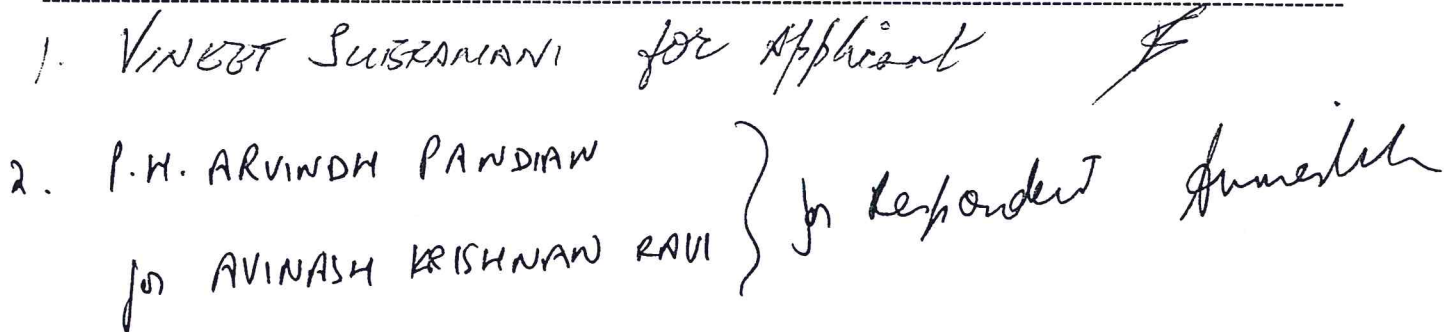 1. VINEET SUBRAMANI for Applicant
2. P.H. ARVINDH PANDIAN
for AVINASH KRISHNAN RAVI } for Respondent